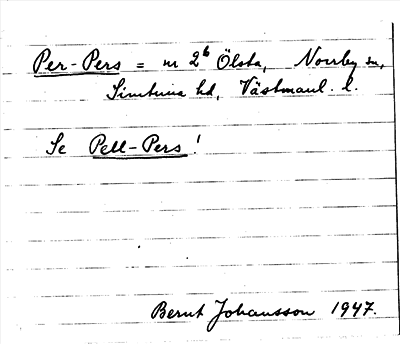 Per-Pers = nr 2b Ölsta, Norrby sn,
Simtuna hd, Västmanl. l.
Se Pell-Pers!
Bernt Johansson 1947.